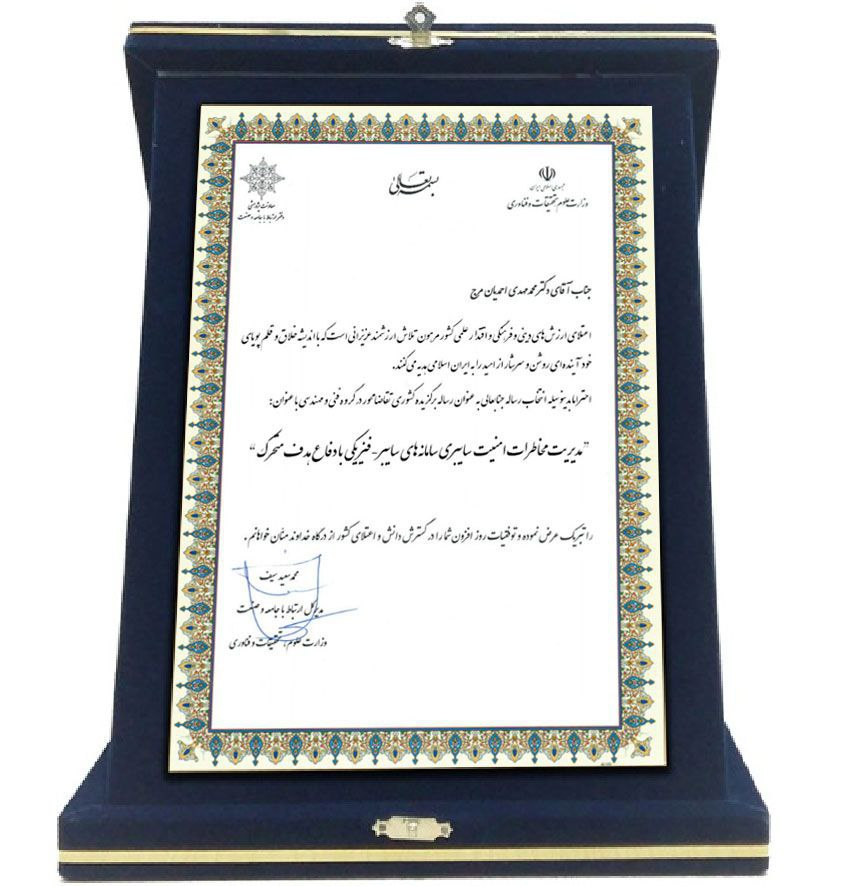 بسمه تعالی
جمهوری اسلامی ایران
وزارت علوم تحقیقات و فناوری
معاونت پژوهشی
دفتر ارتباط با جامعه و صنعت
جناب آقای دکتر محمدمهدی احمدیان مرج
اعتلای ارزش های دینی و فرهنگی و اقتدار علمی کشور مرهون تلاش ارزشمند عزیزانی است که با اندیشه خلاق و قلم پویای
خود آینده ای روشن و سرشار از امید را به ایران اسلامی هدیه می کنند.
احتراما بدینوسیله انتخاب رساله جنابعالی به عنوان رساله برگزیده کشوری تقاضامحور در گروه فنی و مهندسی با عنوان:
"مدیریت مخاطرات امنیت سایبری سامانه های سایبر-فیزیکی با دفاع هدف متحرک"
را تبریک عرض نموده و توفیقات روز افزون شما را در گسترش دانش و اعتلای کشور از درگاه خداوند منان خواهانم.
محمد سعید سیف
مدیرکل ارتباط با جامعه و صنعت
وزارت علوم، تحقیقات و فناوری